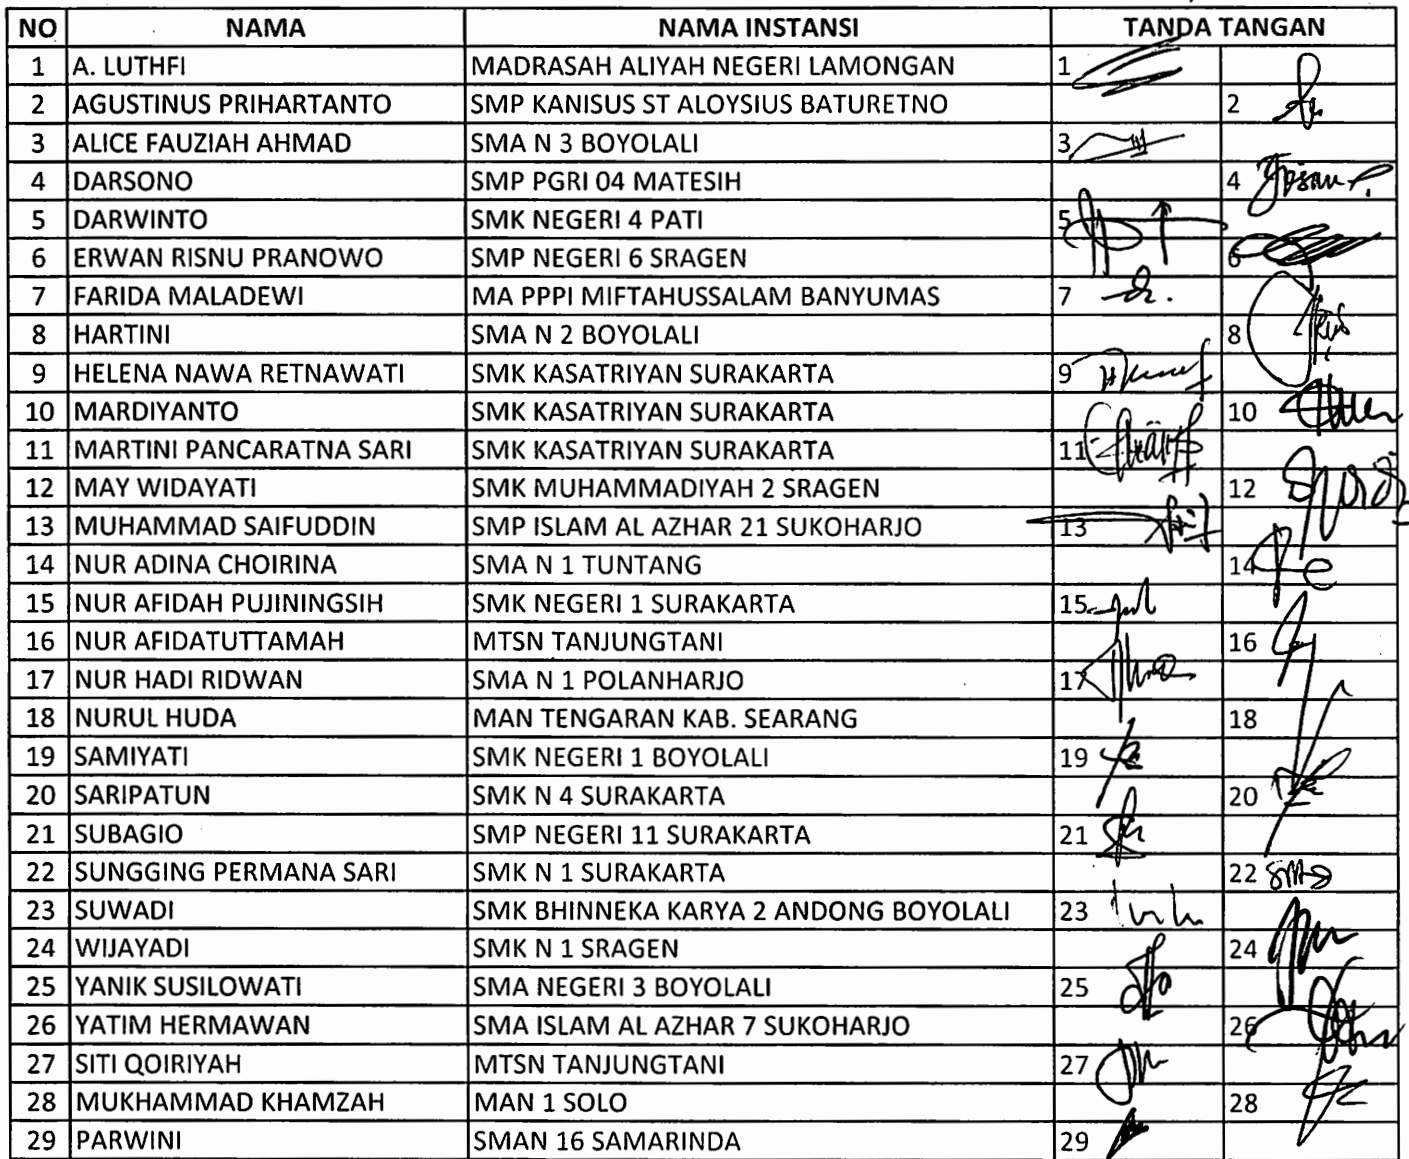 NO NAMA NAMA INSTANSI TANDA TANGAN
1 A. LUTHFI MADRASAH ALIYAH NEGERI LAMONGAN 1
2 AGUSTINUS PRIHARTANTO SMP KANISUS ST ALOYSIUS BATURETNO 2
3 ALICE FAUZIAH AHMAD SMA N 3 BOYOLALI 3
4 DARSONO SMP PGRI 04 MATESIH 4
5 DARWINTO SMK NEGERI 4 PATI 5
6 ERWAN RISNU PRANOWO SMP NEGERI 6 SRAGEN 6
7 FARIDA MALADEWI MA PPPI MIFTAHUSSALAM BANYUMAS 7
8 HARTINI SMA N 2 BOYOLALI 8
9 HELENA NAWA RETNAWATI SMK KASATRIYAN SURAKARTA 9
10 MARDIYANTO SMK KASATRIYAN SURAKARTA 10
11 MARTINI PANCARATNA SARI SMK KASATRIYAN SURAKARTA 11
12 MAY WIDAYATI SMK MUHAMMADIYAH 2 SRAGEN 12
13 MUHAMMAD SAIFUDDIN SMP ISLAM AL AZHAR 21 SUKOHARJO 13
14 NUR ADINA CHOIRINA SMA N 1 TUNTANG 14
15 NUR AFIDAH PUJININGSIH SMK NEGERI 1 SURAKARTA 15
16 NUR AFIDATUTTAMAH MTSN TANJUNGTANI 16
17 NUR HADI RIDWAN SMA N 1 POLANHARJO 17
18 NURUL HUDA MAN TENGARAN KAB. SEARANG 18
19 SAMIYATI SMK NEGERI 1 BOYOLALI 19
20 SARIPATUN SMK N 4 SURAKARTA 20
21 SUBAGIO SMP NEGERI 11 SURAKARTA 21
22 SUNGGING PERMANA SARI SMK N 1 SURAKARTA 22
23 SUWADI SMK BHINNEKA KARYA 2 ANDONG BOYOLALI 23
24 WIJAYADI SMK N 1 SRAGEN 24
25 YANIK SUSILOWATI SMA NEGERI 3 BOYOLALI 25
26 YATIM HERMAWAN SMA ISLAM AL AZHAR 7 SUKOHARJO 26
27 SITI QOIRIYAH MTSN TANJUNGTANI 27
28 MUKHAMMAD KHAMZAH MAN 1 SOLO 28
29 PARWINI SMAN 16 SAMARINDA 29